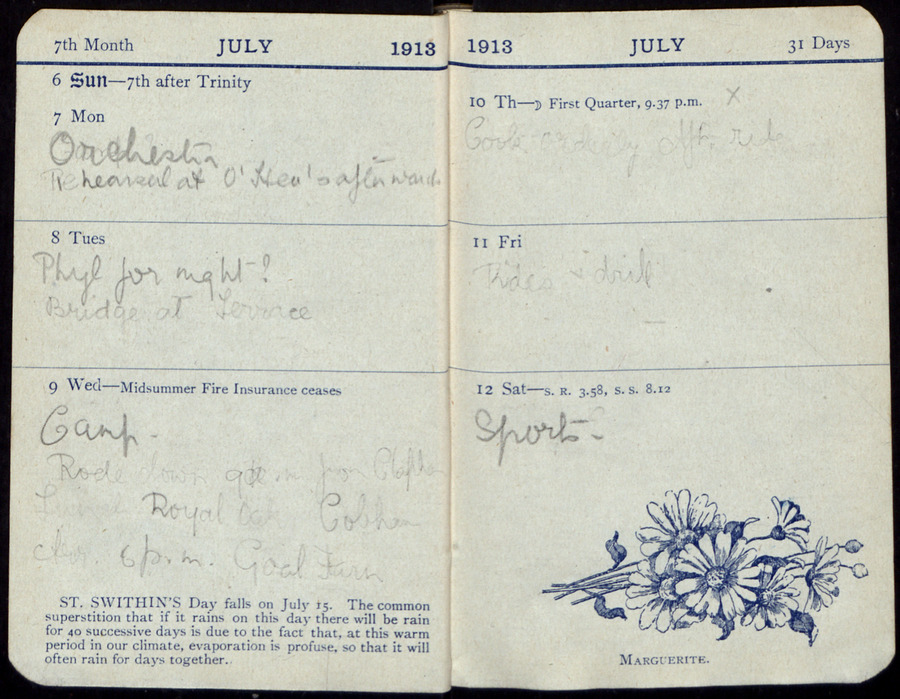 7th Month JULY 1913
6 Sun—7th after Trinity
7 Mon
Orchestra
Rehearsal at O'Hea's afterwards
8 Tues
Phyl for night?
Bridge at
9 Wed—Midsummer Fire Insurance ceases
Camp -
Rode down from
Royal Cobham
6 p.m. Goal Farm
ST. SWITHIN'S Day falls on July 15. The common
superstition that if it rains on this day there will be rain
for 40 successive days is due to the fact that, at this warm
period in our climate, evaporation is profuse, so that it will
often rain for days together.
1913 JULY 31 Days
10 Th—☽ First Quarter, 9.37 p.m. X
Cook ride
11 Fri
Rides & drill
12 Sat—S. R. 3.58, S. S. 8.12
Sports -
MARGUERITE.